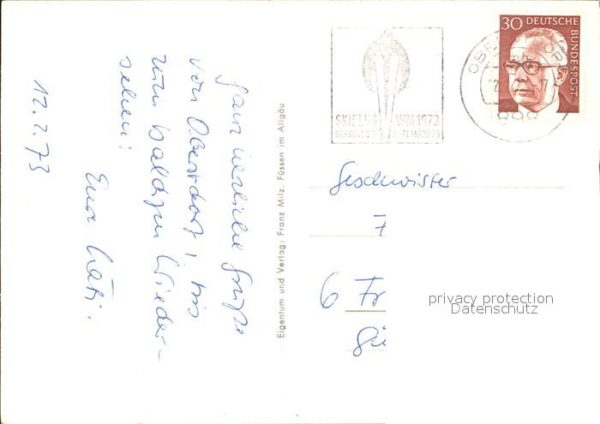 12.2.73
Ganz herzliche Grüße
von Oberstdorf, bis
zum baldigen Wieder-
sehen!
Eure Käti.
Eigentum und Verlag: Franz Milz, Füssen im Allgäu
SKIFLUG WM 1973
OBERSTDORF
30 DEUTSCHE
BUNDESPOST
Geschwister
7
6 Fr
privacy protection
Datenschutz